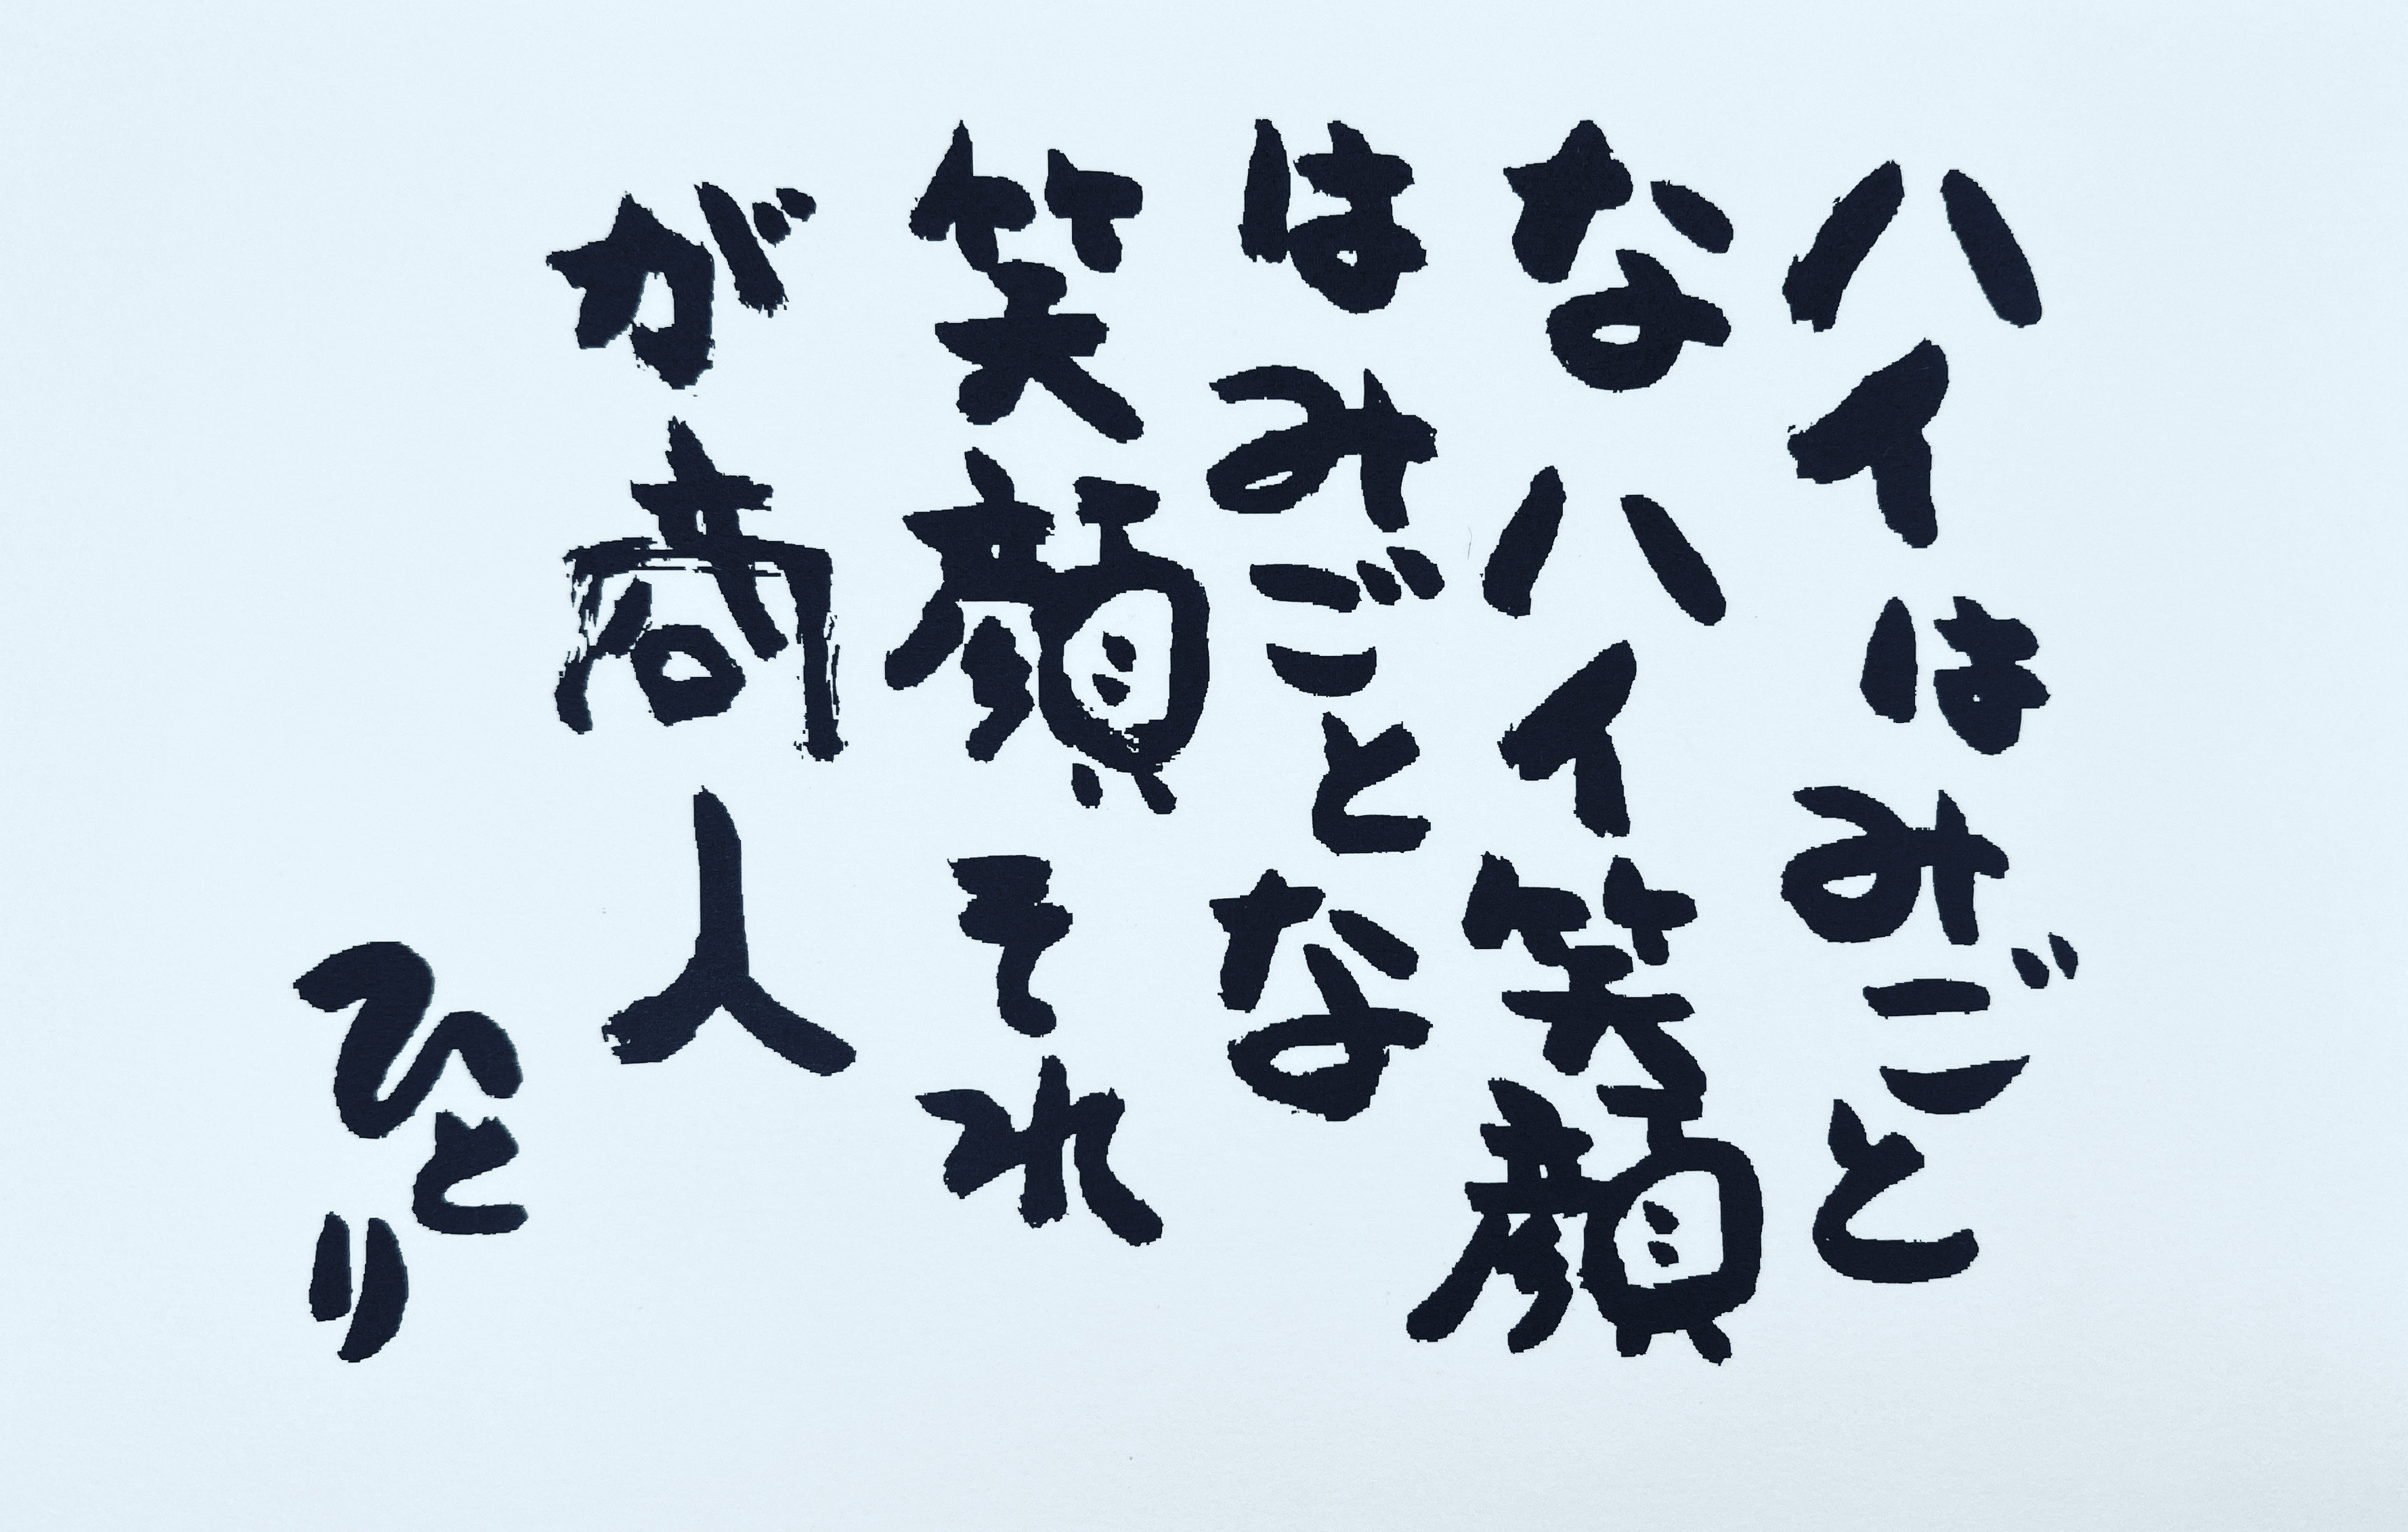 ハイはみごと
なハイ笑顔
はみごとな
笑顔それ
が商人
ひとり